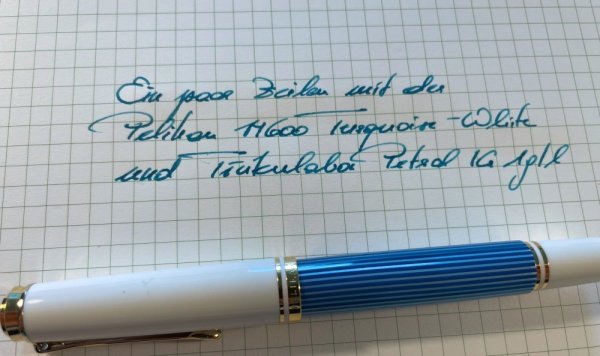 Ein paar Zeilen mit der
Pelikan M600 Turquoise-White
und Tintenlabor Petrol